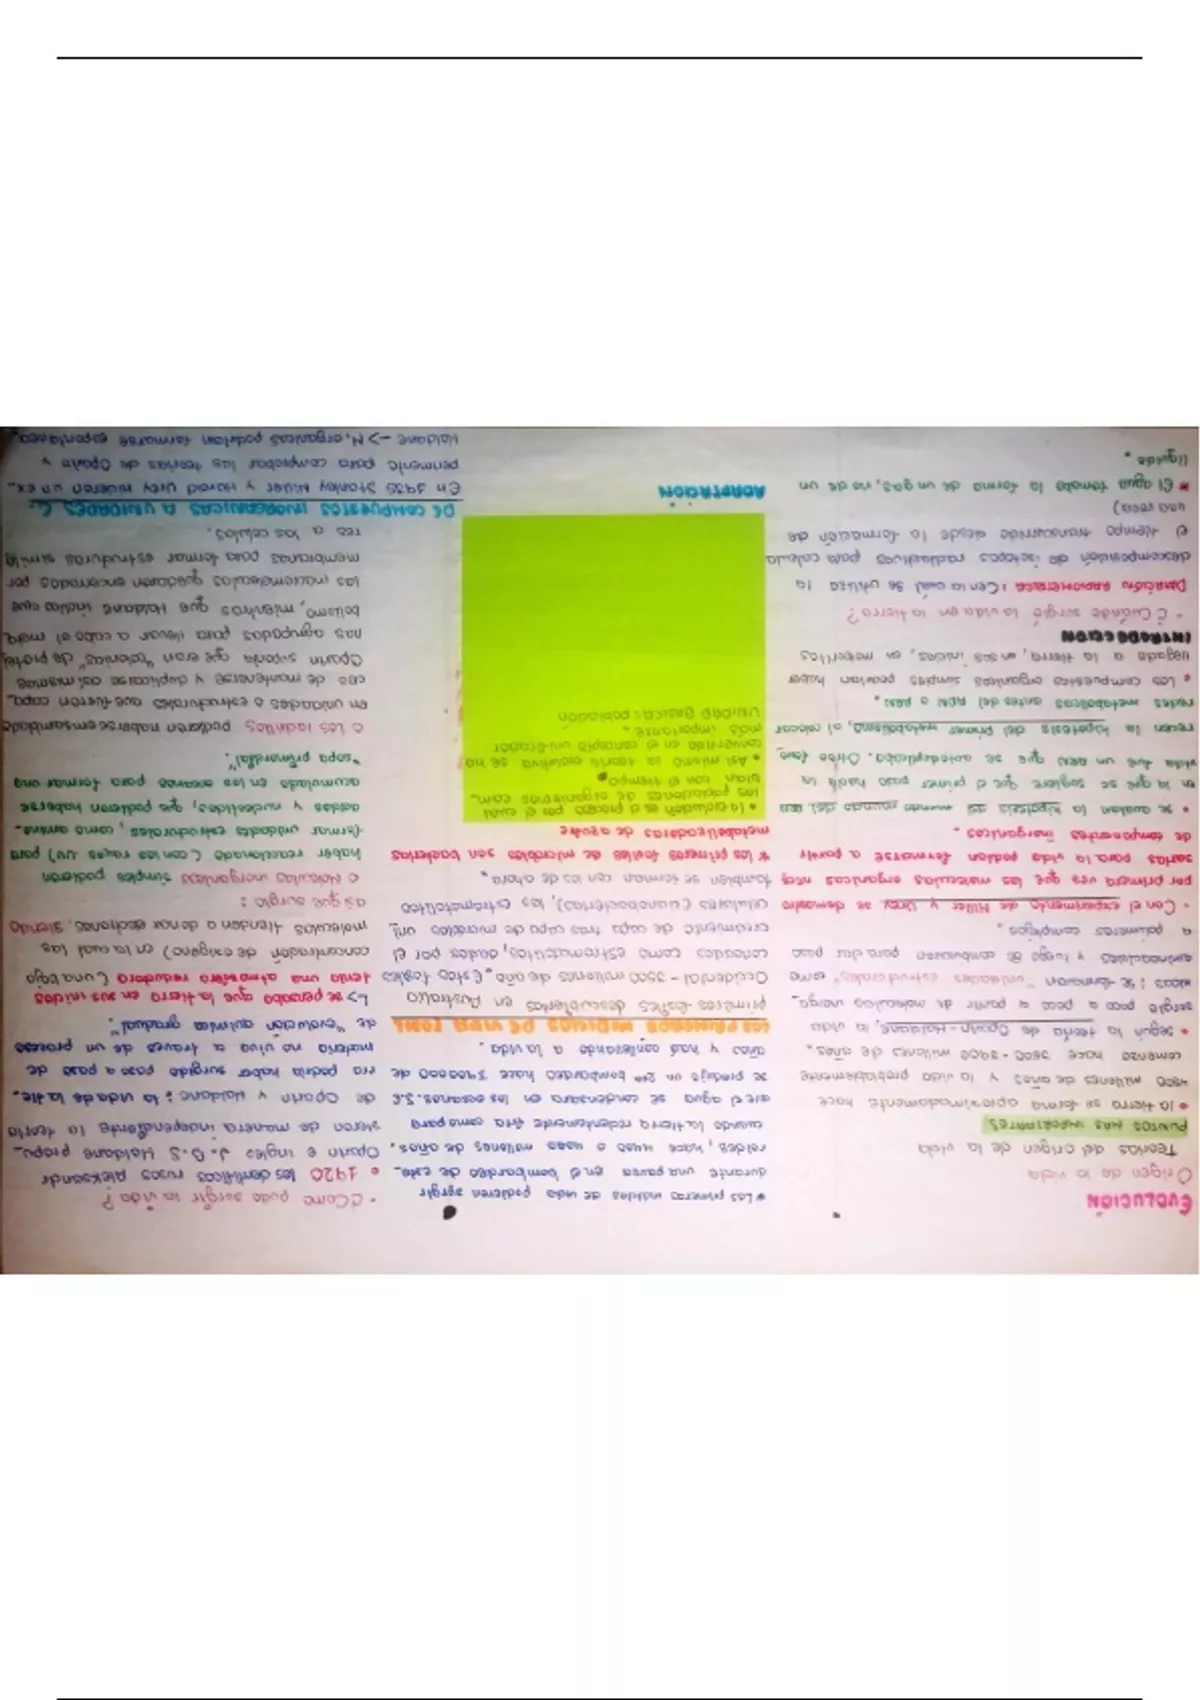 EVOLUCIÓN
Origen de la vida
Teorías del origen de la vida
PUNTOS MAS IMPORTANTES
• la tierra se forma aproximadamente hace
4600 millones de años y la vida probablemente
comenzo hace 3800 - 3900 millones de años.
• según la teoría de Oparin - Haldane, la vida
surgió poco a poco a partir de moleculas inorga_
nicas; se formaron "unidades estructurales" como
aminoacidos y luego se combinaron para dar paso
a polímeros complejos.
- Con el experimento de Miller y Urey se demostro
por primera vez que las moleculas organicas nece
sarias para la vida podian formarse a partir
de componentes inorganicos.
• se avalan la hipotesis del mundo
en la que se sugiere que el primer paso hacia la
vida fue un ARN que se autoduplicaba. Otros favo_
recen la hipotesis del primer metabolismo, al colocar
redes metabolicas antes del ADN o ARN.
• Los compuestos organicos simples podrian haber
llegado a la tierra, en sus inicios, en meteoritos
INTRODUCCION
- ¿Cuándo surgió la vida en la tierra?
DATACIÓN RADIOMETRICA: Con la cuál se utiliza la
descomposición de isotopos radiactivos para calcula
el tiempo transcurrido desde la formación de
una roca)
* El agua tomaba la forma de un gas, no de un
liquido.
* Los primeros indicios de vida pudieron surgir
durante una pausa en el bombardeo de aste_
roides, hace 4400 o 4000 millones de años,
cuando la tierra recientemente fria como para
que el agua se condensara en los oceanos. S.E
se produjo un 2do bombardeo hace 3900000 de
años y haó conllevando a la vida.
LOS PRIMEROS INDICIOS DE VIDA FOSIL
primeros fósiles descubiertos en Australia
Occidental - 3500 millones de año. Estos fosiles
conocidos como estromatolitos, dados por el
crecimiento de capa tras capa de microbios uni_
celulares (cuanobacterias), los estromatolitos
tambien se forman con los de ahora.
* los primeros fosiles de microbios son bacterias
metabolizadoras de azufre
• la evolución es el proceso por el cual
las poblaciones de organismos cam_
bian con el tiempo.
• Así mismo la teoría evolutiva se ha
convertido en el concepto unificador
más importante.
UNIDAD BASICA: población
ADAPTACIÓN
- ¿Como pudo surgir la vida?
• 1920 los cientificos rusos Aleksandr
Oparin e ingles J. B. S Haldane propu_
sieron de manera independiente la teoría
de Oparin y Haldane: la vida de la tie_
rra podria haber surgido paso a paso de
materia no viva a traves de un proceso
de "evolucion quimica gradual".
↳ se pensaba que la tierra en sus inicios
tenia una atmosfera reductora (una baja
concentración de oxigeno) en la cual las
moleculas tienden a donar electrones, siendo
asi que surgio:
○ Moleculas inorganicas simples pudieron
haber reaccionado (con los rayos UV) para
formar unidades estructurales, como amino_
acidos y nucleotidos, que pudieron haberse
acumulado en los oceanos para formar una
"sopa primordial".
○ Los ladrillos pudieron haberse emsamblado
en unidades o estructurales que fueron capa_
ces de mantenerse y duplicarse asi mismas
Oparin suponia que eran "colonias" de protei
nas agrupadas para llevar a cabo el meta
bolismo, mientras que Haldane indica que
las macromoleculas quedaron encerradas por
membranas para formar estructuras simila
res a las celulas.
DE COMPUESTOS INORGANICOS A UNIDADES E.
En 1953 Stanley Miller y Harold Urey hicieron un ex_
perimento para comprobar las teorias de Oparin y
Haldane -> M. organicas podrian formarse espontanea_